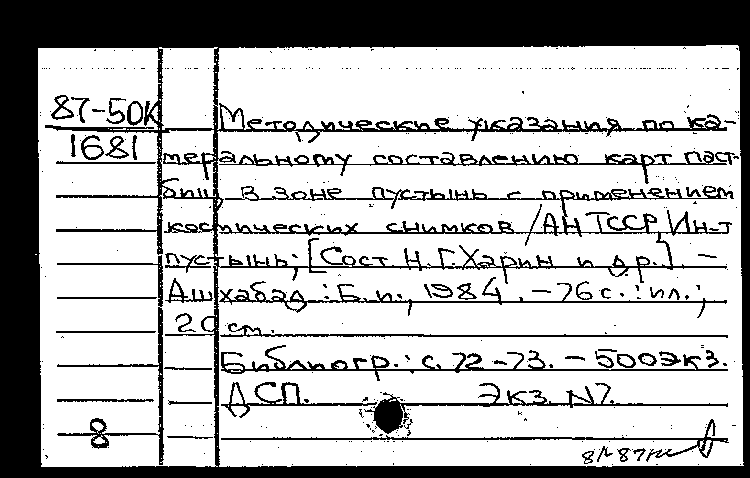 87-50К Методические указания по ка-
1681 меральному составлению карт паст-
бищ в зоне пустынь с применением
космических снимков / АН ТССР, Ин-т
пустынь; [Сост. Н. Г. Харин и др.]. –
Ашхабад : Б. и., 1984. – 76 с. : ил.;
20 см.
Библиогр.: с. 72-73. – 500экз.
ДСП. Экз. N7.
8